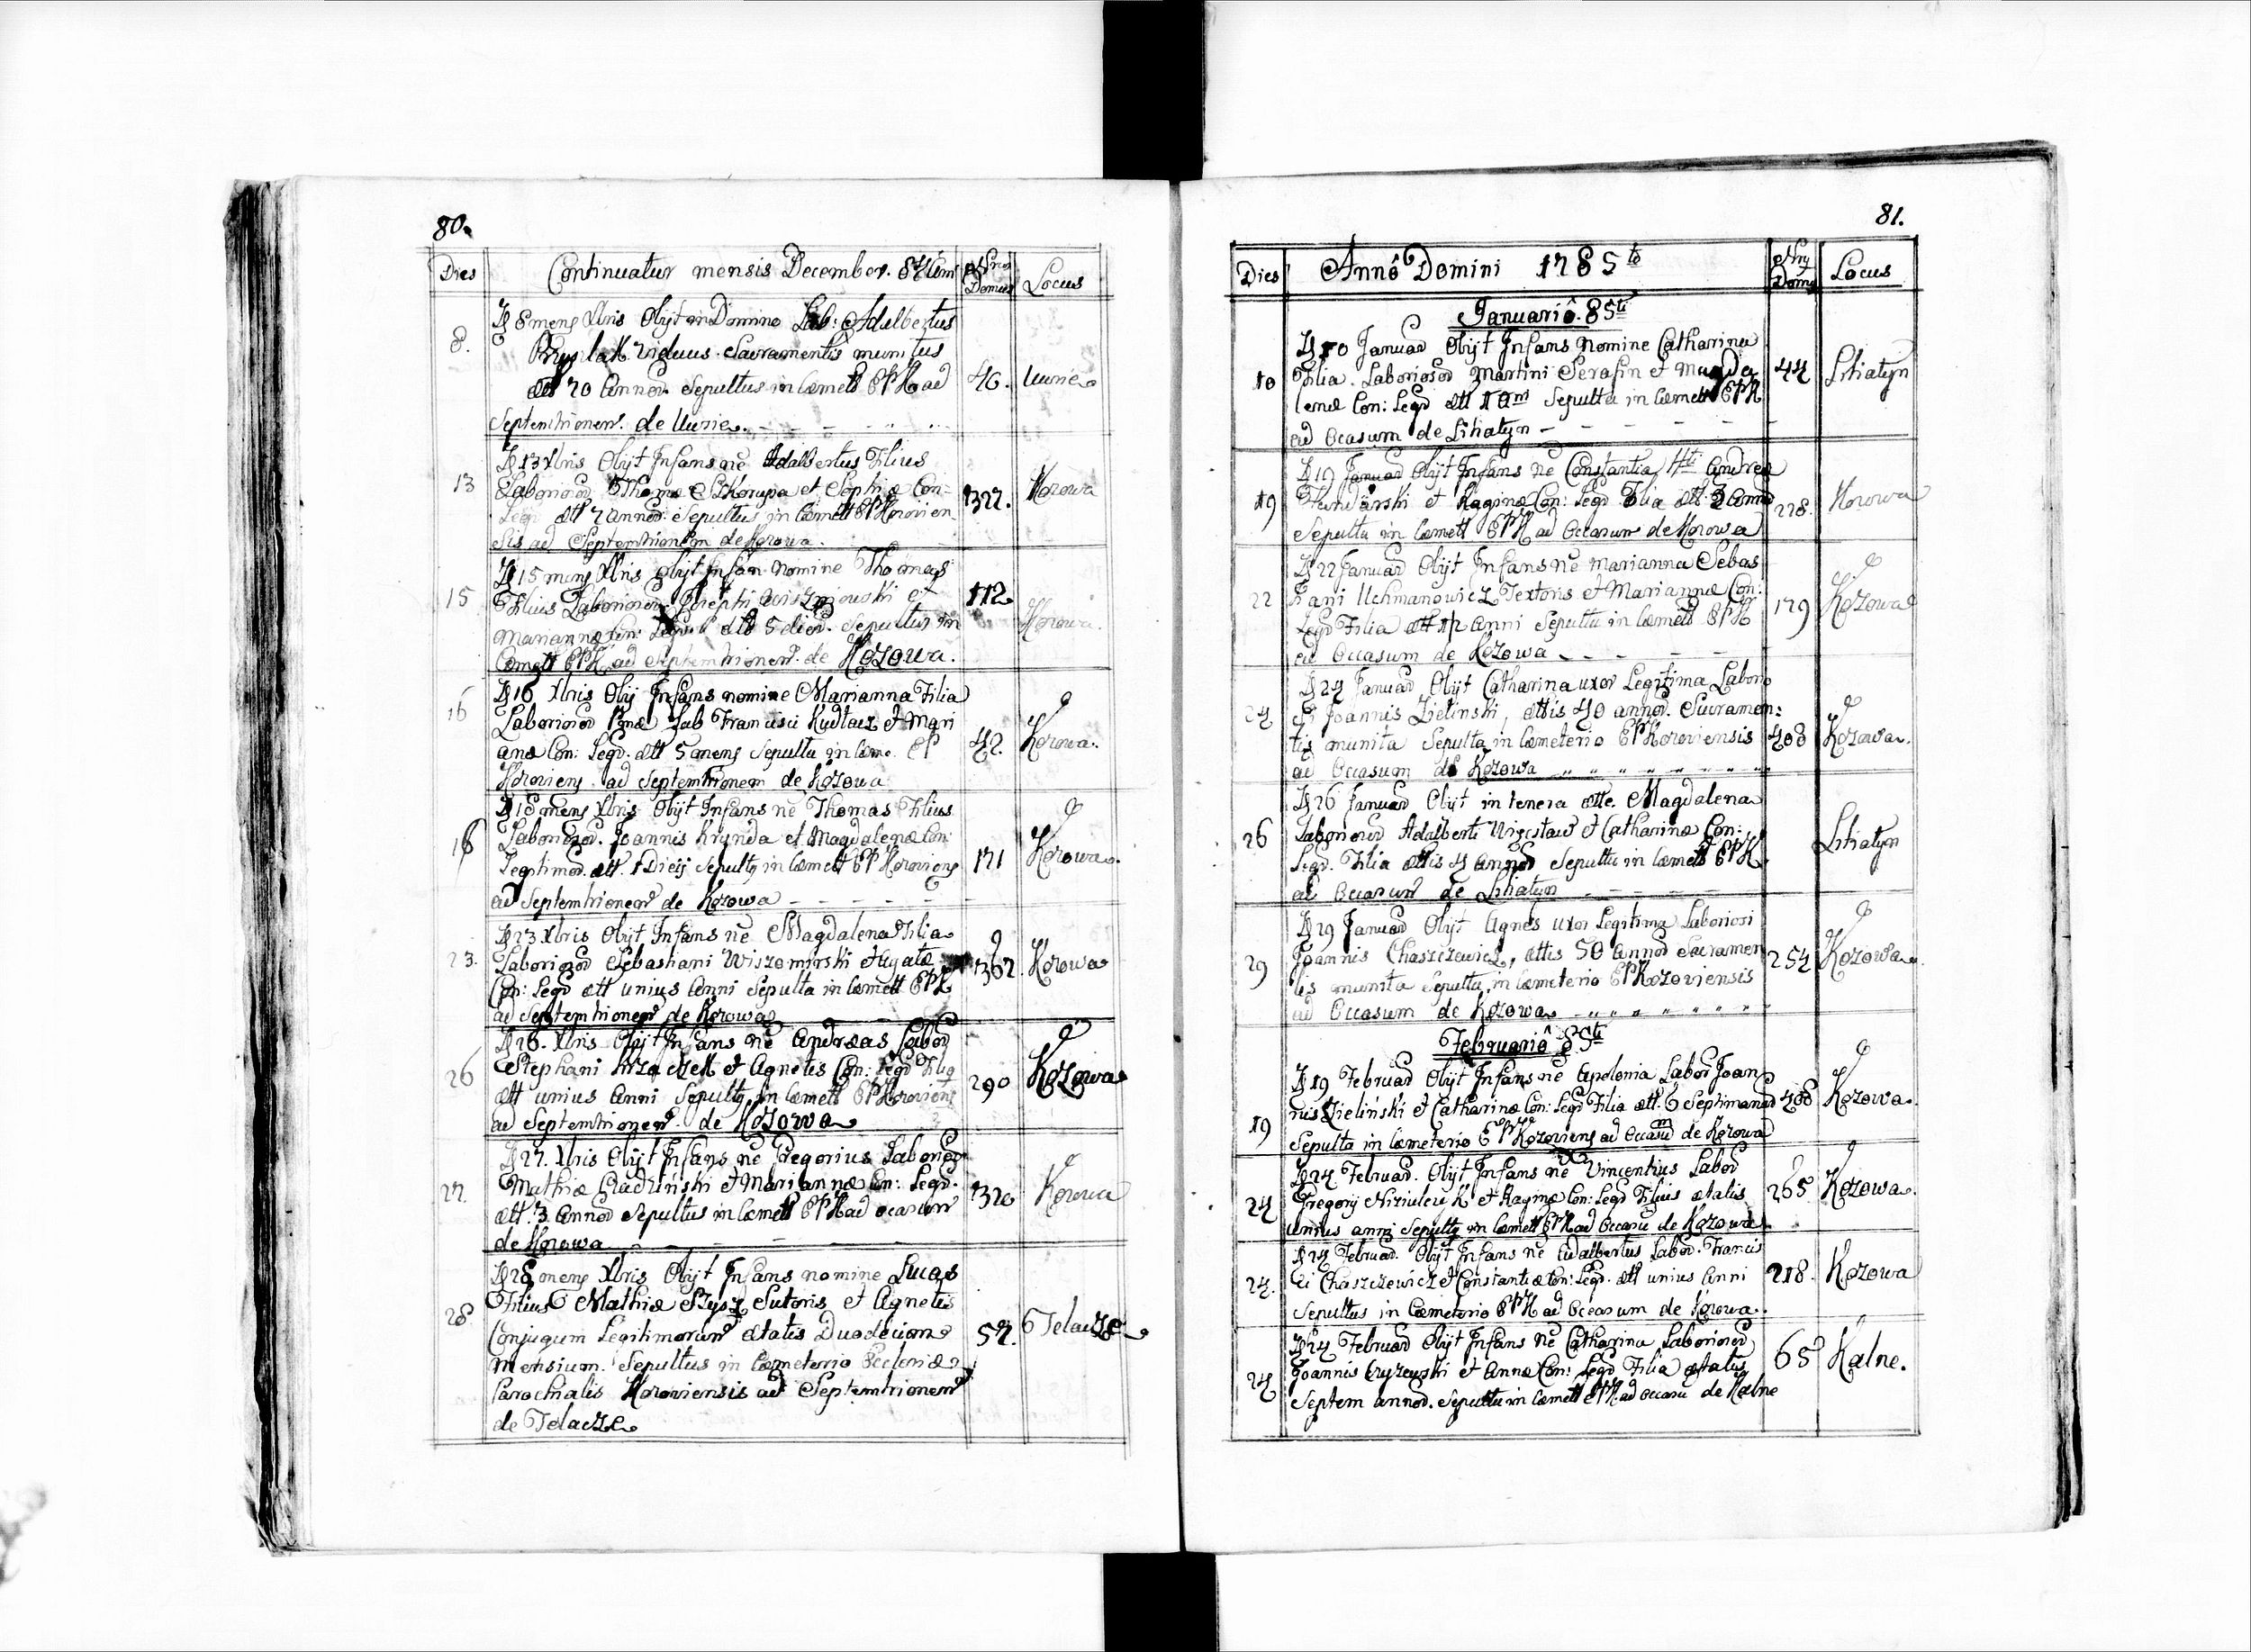 80.
Dies
Continuatur mensis December. 84tum
Nrus
Domus
Locus
8.
D 8 mens Xbris Obijt in Domino Lab: Adalbertus
viduus. Sacramentis munitus
att 70 Annor. Sepultus in Cæmett EPK ad
Septemtrionem. de Uurie.
46.
Uurie
13
D 13 Xbris Obijt Infans nē Adalbertus Filius
Laboriosor Thomæ Skorupa et Sophiæ Con:
Legr att 2 annor. Sepultus in Cæmett EPKozovien
sis ad Septemtrionem de Kozowa.
327.
Kozowa
15
D 15 mens Xbris Obijt Infan nomine Thomas
Filius Laboriosor Josephi et
Mariannæ Con: Legr. att 5 dier. Sepultus in
Cæmett EPK ad Septemtrionem. de Kozowa.
112
Kozowa.
16
D 16 Xbris Obij Infans nomine Marianna Filia
Laboriosor Lab Francisci Kudłacz et Mari
anæ Con: Legr. att 5 mens Sepulta in Cæme. EP
Kozoviens. ad Septemtrionem de Kozowa
42.
Kozowa.
18
D 18 mens Xbris Obijt Infans nē Thomas Filius
Laboriosor. Joannis Krynda et Magdalenæ Con:
Legitimor. att. 1 Diei Sepultg in Cæmett EPKozoviens
ad Septemtrionem de Kozowa
171
Kozowa.
23.
D 23 Xbris Obijt Infans nē Magdalena Filia
Laboriosor Sebastiani Wiszomirski et Agatæ
Con: Legr att unius Anni Sepulta in Cæmett EPK
ad Septemtrionem de Kozowa
362.
Kozowa
26
D 26. Xbris Obijt Infans nē Andreas Labor
Stephani et Agnetis Con: Legr Filig
att unius Anni Sepultg in Cæmett EPKozoviens
ad Septemtrionem. de Kozowa
290
Kozowa
27.
D 27. Xbris Obijt Infans nē Gregorius Laborios
Mathiæ et Mariannæ Con: Legr.
att. 3 Annor Sepultus in Cæmett EPK ad ocasum
de Kozowa
320
Kozowa
28
D 28 mens Xbris Obijt Infans nomine Lucas
Filius Mathiæ Szysz Sutoris et Agnetis
Conjugum Legitimorum ætatis Duodecim
mensium. Sepultus in Cæmeterio Eccleniæ
Parochialis Kozoviensis ad Septemtrionem
de Telacze
57.
Telacze
81.
Dies
Annô Domini 1785to
Nry
Domg
Locus
Januariô. 85ti
10
D 10 Januar Obijt Infans Nomine Catharina
Filia. Laboriosor Martini Serafin et Magda
lenæ Con: Legr att 1 am Sepulta in Cæmett EPK
ad Ocasum de Lihatyn
44
Lihatyn
19
D 19 Januar Obijt Infans nē Constantia, 4ti Andreæ
et Raginæ Con: Legr Filia att 2 Annor
Sepulta in Cæmett EPK ad Occasum de Kozowa
228.
Kozowa
22
D 22 Januar Obijt Infans nē Marianna Sebas
tiani Uchmanowicz Textoris et Mariannæ Con:
Legr Filia att 1/2 Anni Sepulta in Cæmett EPK
ad Occasum de Kozowa
179
Kozowa
24
D 24 Januar Obijt Catharina uxor Legitima Laborio
si Joannis Zielinski, ættis 40 annor. Sacramen:
tis munita Sepulta in Cæmeterio EPKozoviensis
ad Occasum de Kozowa
408
Kozowa.
26
D 26 Januar Obijt in tenera ætte. Magdalena
Laboriosor Adalberti et Catharinæ Con:
Legr. Filia ættis 4 Annor Sepulta in Cæmett EPK
ad Occasum de Lihatyn
Lihatyn
29
D 29 Januar Obijt Agnes uxor Legitima Laboriosi
Joannis Chaszczewicz, ættis 50 Annor Sacramen
tis munita Sepulta in Cæmeterio EPKozoviensis
ad Occasum de Kozowa
254
Kozowa.
Februariô 85ti
19
D 19 Februar Obijt Infans nē Apolonia Labor Joan
nis Zieliński et Catharinæ Con: Legr Filia att. 6 Septimanar
Sepulta in Cæmeterio EPKozoviens ad Occasum de Kozowa
408
Kozowa.
24
D 24 Februar. Obijt Infans nē Vincentius Labor
Gregorij et Raginæ Con: Legr Filius ætatis
Unius anni Sepultg in Cæmett EPK ad Occasū de Kozowa
265
Kozowa.
24.
D 24 Februar. Obijt Infans nē Adalbertus Labor. Francis
ci Chaszczewicz et Constantiæ Con: Legr. att unius Anni
Sepultus in Cæmeterio EPK ad Occasum de Kozowa.
218.
Kozowa
24
D 24 Februar Obijt Infans Nē Catharina Laboriosor
Joannis Cryzewski et Annæ Con: Legr Filia ætatis
Septem annor. Sepulta in Cæmett EPK ad Occasū de Kalne
65
Kalne.